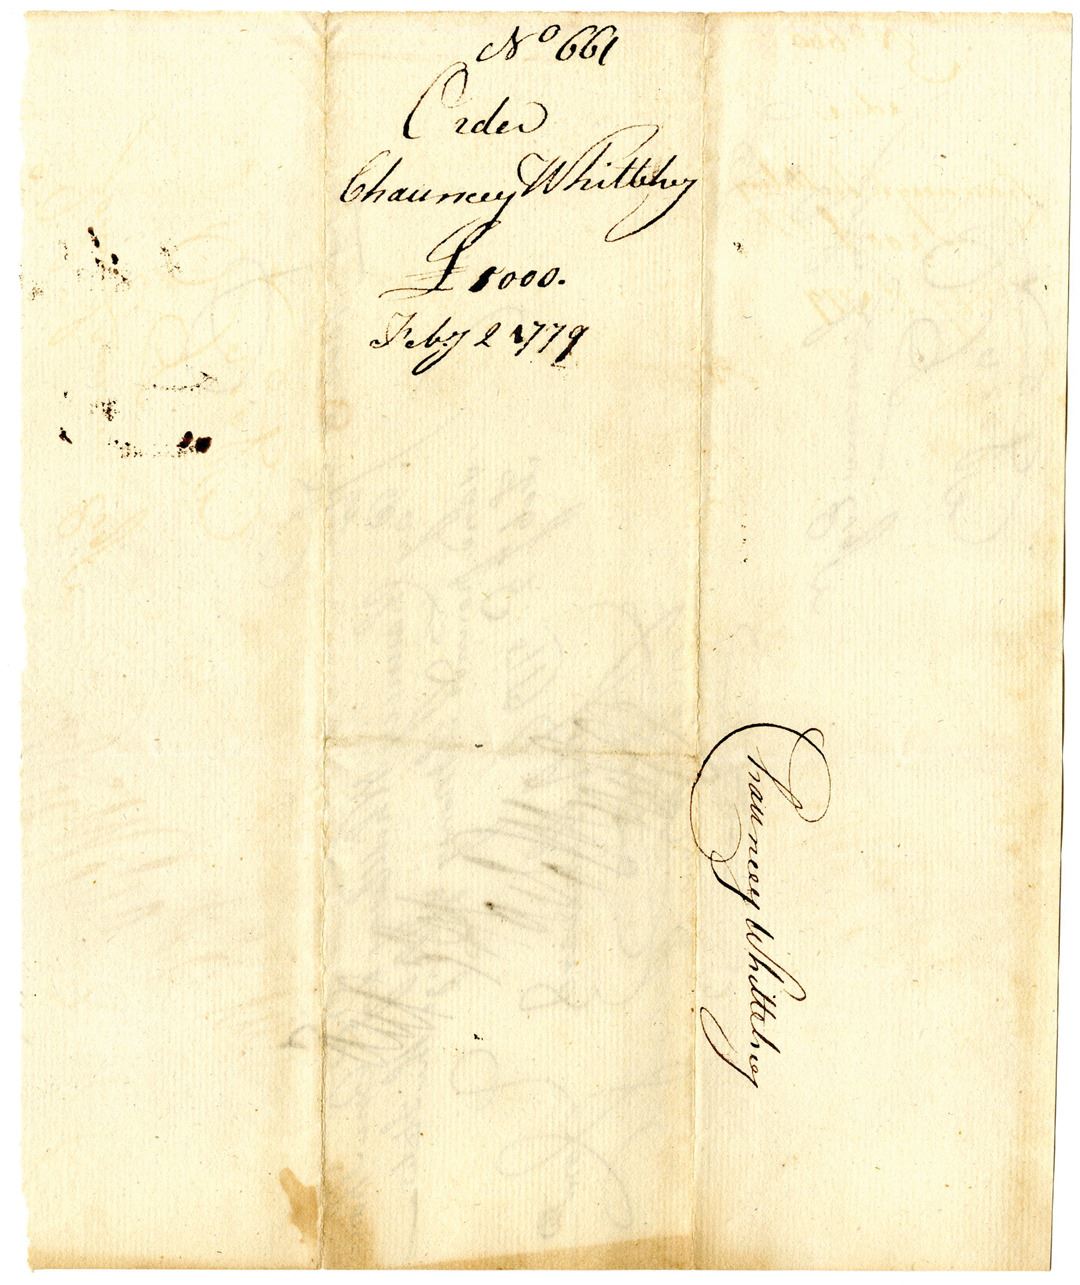 No 661
Order
Chauncey Whittelsey
£ 1000.
Feby 2 1779
Chauncey Whittelsey